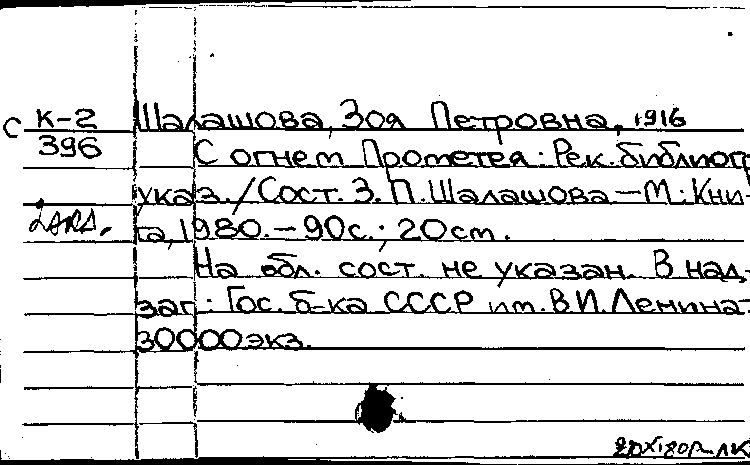 С К-2
396
Шалашова, Зоя Петровна, 1916
С огнем Прометея: Рек. библиогр
указ./Сост. З. П. Шалашова — М.: Кни-
га, 1980. — 90с.; 20см.
На обл. сост. не указан. В над-
заг: Гос. б-ка СССР им. В.И. Ленина.
30000экз.